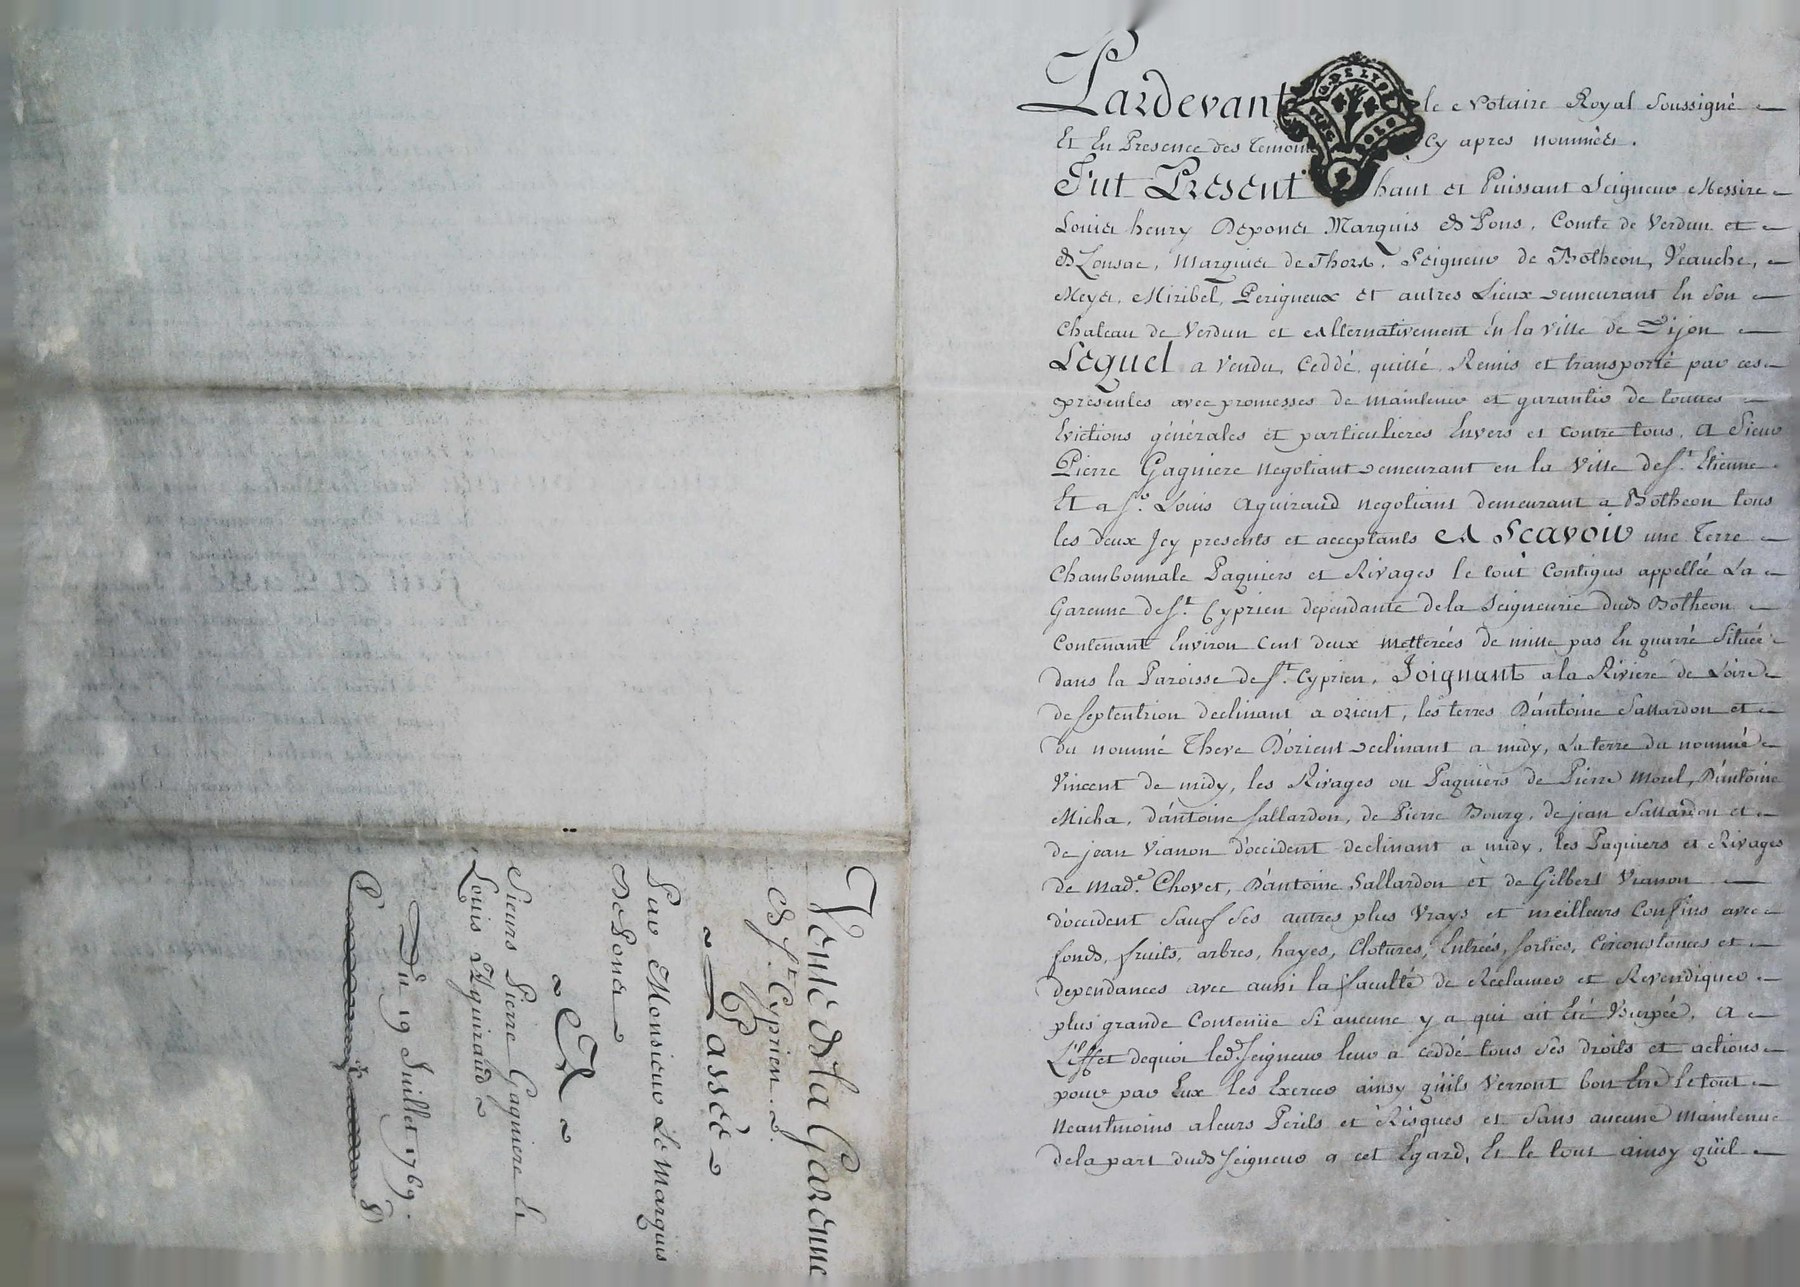 Vente de la Garenne
de St. Cyprien.
Passée
Par Monsieur Le Marquis
De Pons
A
Sieurs Pierre Gagniere Et
Louis Aguiraud
Du 19 Juillet 1769.
Pardevant le Notaire Royal Soussigné
Et En Presence des Temoins cy apres nommés.
Fut Present haut et Puissant Seigneur Messire
Louis henry Depons Marquis de Pons, Comte de Verdun et
de Lonsac, Marquis de Thors, Seigneur de Botheon, Veauche,
Meys, Miribel, Perigneux et autres Lieux demeurant En Son
Chateau de Verdun et alternativement En la ville de Dijon
Lequel a vendu, Ceddé, quitté, Remis et transporté par ces
presentes avec promesses de maintenir et garantir de toutes
Evictions générales et particulieres Envers et contre tous, a Sieur
Pierre Gagniere negotiant demeurant en la Ville de St. Etienne
Et a Sr. Louis Aguiraud negotiant demeurant a Botheon tous
les deux Icy presents et acceptants A Scavoir une Terre
Chambonnale Paquiers et Rivages le tout Contigus appellée La
Garenne de St. Cyprien dependante de la Seigneurie dud Botheon
Contenant Environ Cent deux metterées de mille pas En quarré Située
dans la Paroisse de St. Cyprien, Joignant a la Riviere de Loire
de septentrion declinant a orient, les terres D'antoine Sallardon et
du nommé Theve D'orient declinant a midy, La terre du nommé
Vincent de midy, les Rivages ou Paquiers de Pierre Morel, D'antoine
Micha, d'antoine Sallardon, de Pierre Bourg, de jean Sallardon et
de jean Vianon d'occident declinant a midy, les Paquiers et Rivages
de Made. Chovet, D'antoine Sallardon et de Gilbert Vianon
d'occident Sauf Ses autres plus Vrays et meilleurs Confins avec
fonds, fruits, arbres, hayes, Clotures, Entrées, sorties, Circonstances et
dependances avec aussi la faculté de Reclamer et Revendiquer
plus grande Contenüe Si aucune y a qui ait Eté Usurpée, A
L'Effet dequoi led. Seigneur leur a ceddé tous Ses droits et actions
pour par Eux les Exercer ainsy qu'ils Verront bon Etre Le tout
neantmoins a leurs Perils et Risques et Sans aucune maintenue
de la part dud Seigneur a cet Egard, Et le tout ainsy qu'il